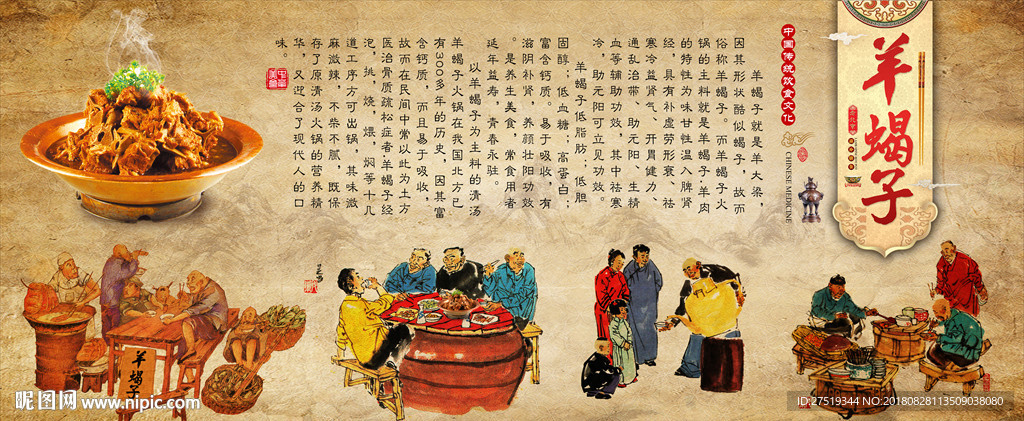 羊蝎子
中国传统饮食文化
CHINESE MEDICINE
羊蝎子就是羊大梁，
因其形状酷似蝎子，故而
俗称羊蝎子。而羊蝎子火
锅的主料就是羊蝎子。羊肉
的特性为味甘性温入脾肾
经，具有补虚劳形衰、祛
寒冷益肾气、开胃健力、
通乱治带、助元阳、生精
血等辅助功效，其中祛寒
冷、助元阳可立见功效。
羊蝎子低脂肪；低胆
固醇；低血糖；高蛋白；
富含钙质。易于吸收，有
滋阴补肾，养颜壮阳功效
。是养生美食，常食用者
延年益寿，青春永驻。
以羊蝎子为主料的清汤
羊蝎子火锅在我国北方已
有300多年的历史，因其富
含钙质，而且易于吸收，
故而在民间中常以此为土方
医治骨质疏松症者羊蝎子经
泡，挑，烧，煨，焖等十几
道工序方可出锅，其味滋
麻滋辣，不柴不腻，既保
存了原清汤火锅的营养精
华，又迎合了现代人的口
味。
羊蝎子
昵图网 www.nipic.com
ID:27519344 NO:20180828113509038080